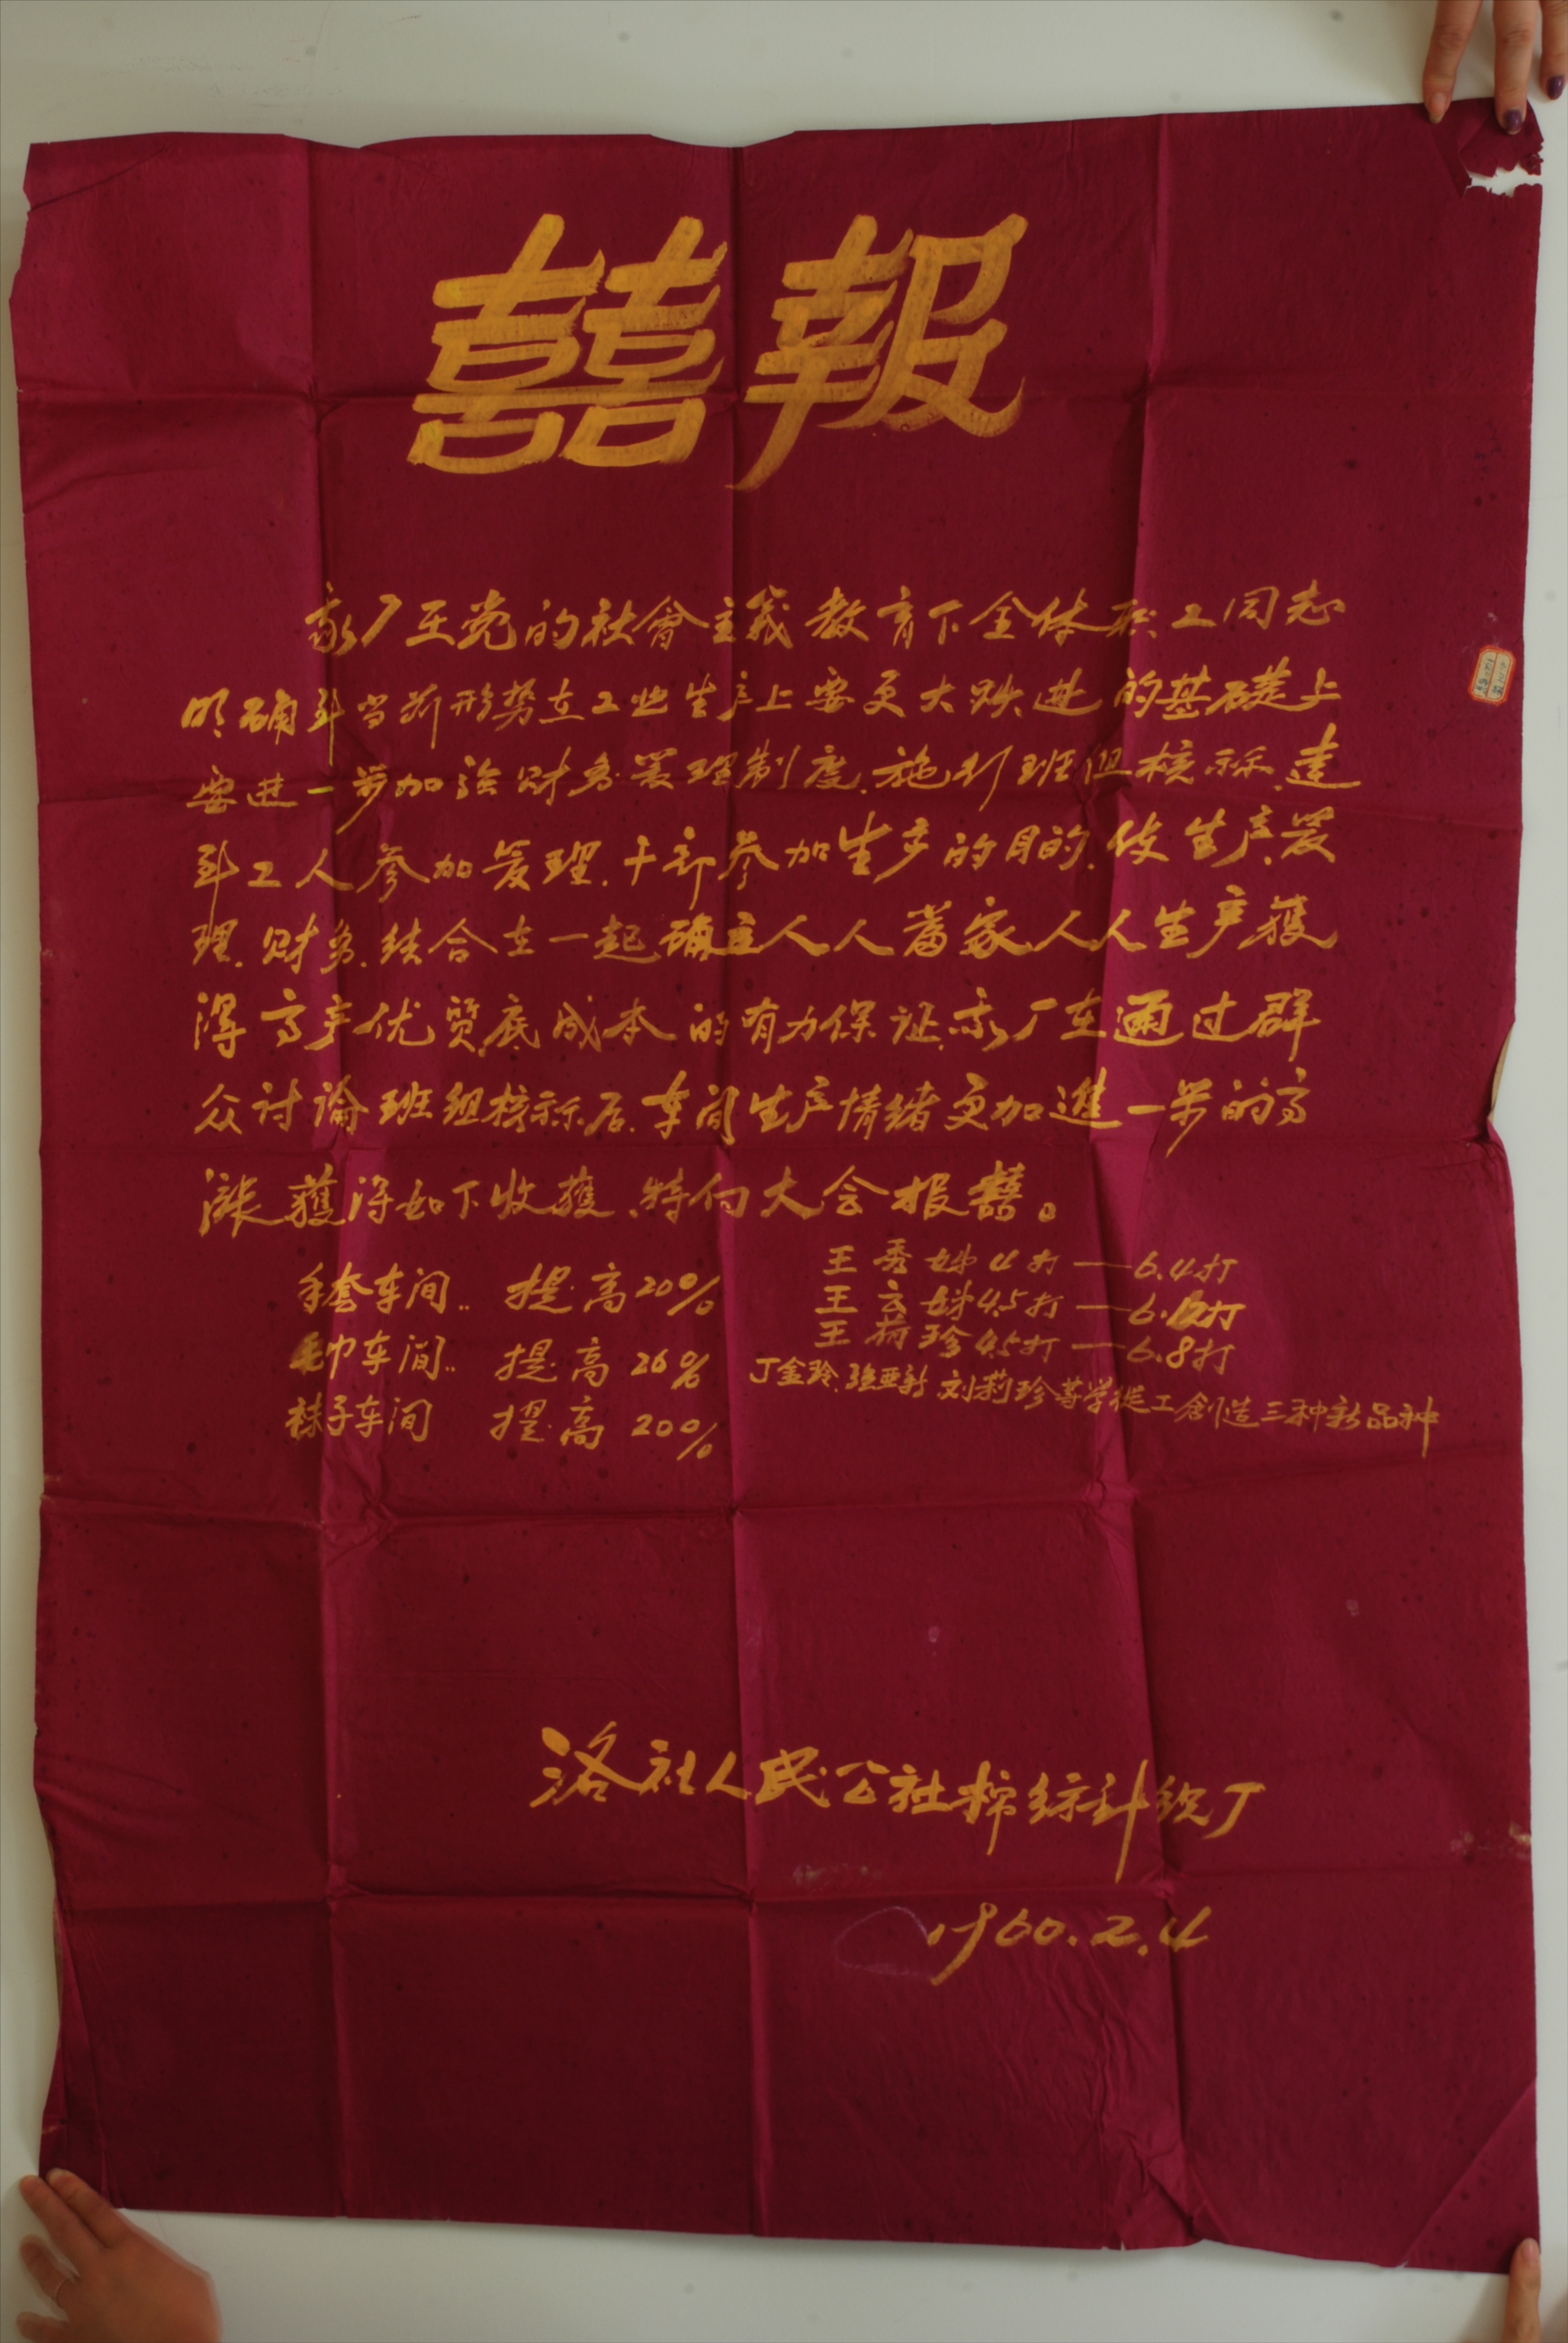 囍報
我厂在党的社會主義教育下全体职工同志
明确到当前形势在工业生产上要更大跃进的基礎上
要进一步加强财务管理制度.施行班组核算.达
到工人参加管理.干部参加生产的目的.使生产.管
理.财务.结合在一起确立人人當家人人生产獲
得高产优质底成本的有力保证.我厂在通过群
众讨論班组核算后.车间生产情绪更加進一步的高
漲獲得如下收獲.特向大会报囍。
手套车间.. 提高20%
毛巾车间.. 提高26%
袜子车间 提高20%
王秀娣4打——6.4打
王云娣4.5打——6.12打
王荷珍4.5打——6.8打
丁金玲.强亚新.刘莉珍等学徒工創造三种新品种
洛社人民公社棉综针织厂
1960.2.4